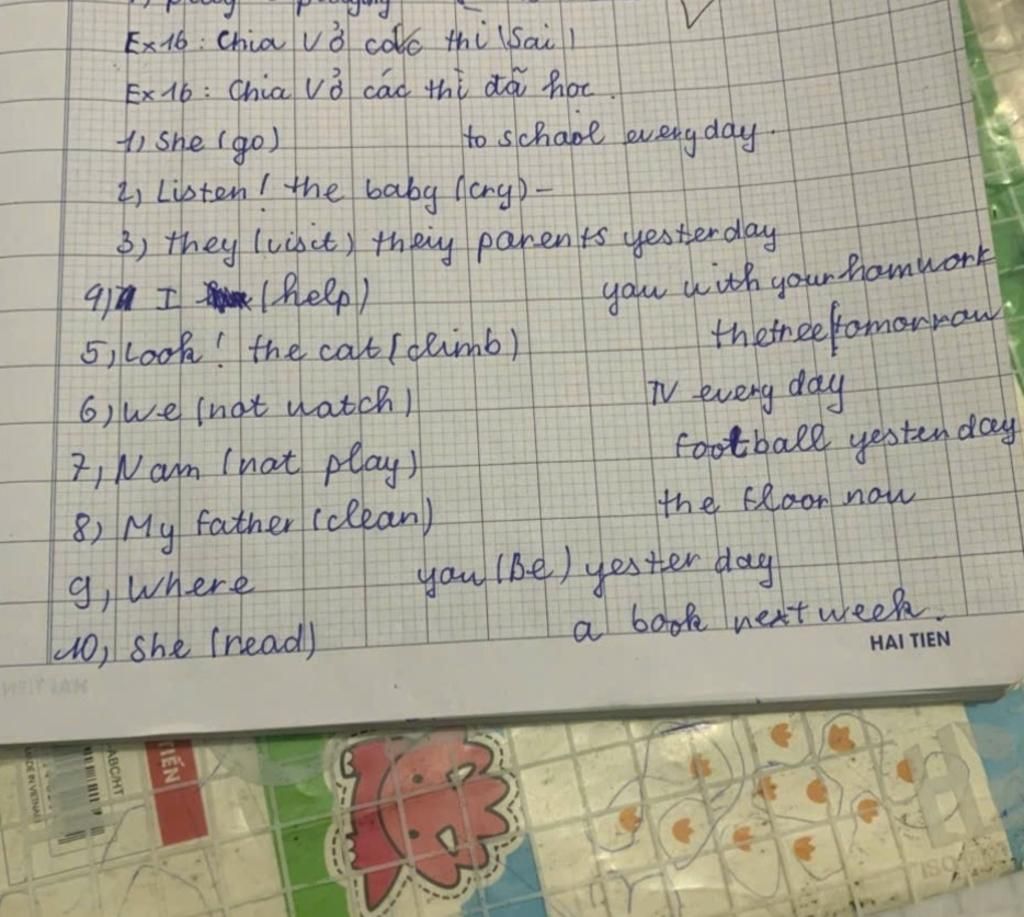 Ex16: Chia Vở các thì (Sai)
Ex16: Chia Vở các thì đã học.
1) She (go) to school every day.
2) Listen! the baby (cry) -
3) they (visit) their parents yesterday
4) I (help) you with your homwork
5) Look! the cat (climb) the tree tomorrow
6) We (not watch) TV every day
7, Nam (not play) football yesterday
8) My father (clean) the floor now
9, Where you (Be) yesterday
10, She (read) a book next week.
HAI TIEN
TIẾN
ABC/HT